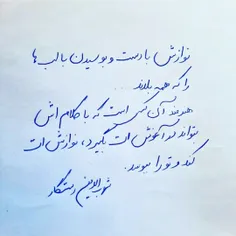 نوازش با دست و بوسیدن با لب ها
را که همه بلدند ...
هنرمند آن کسی است که با کلام اش
بتواند در آغوش ات بگیرد، نوازش ات
کند و تو را ببوسد.